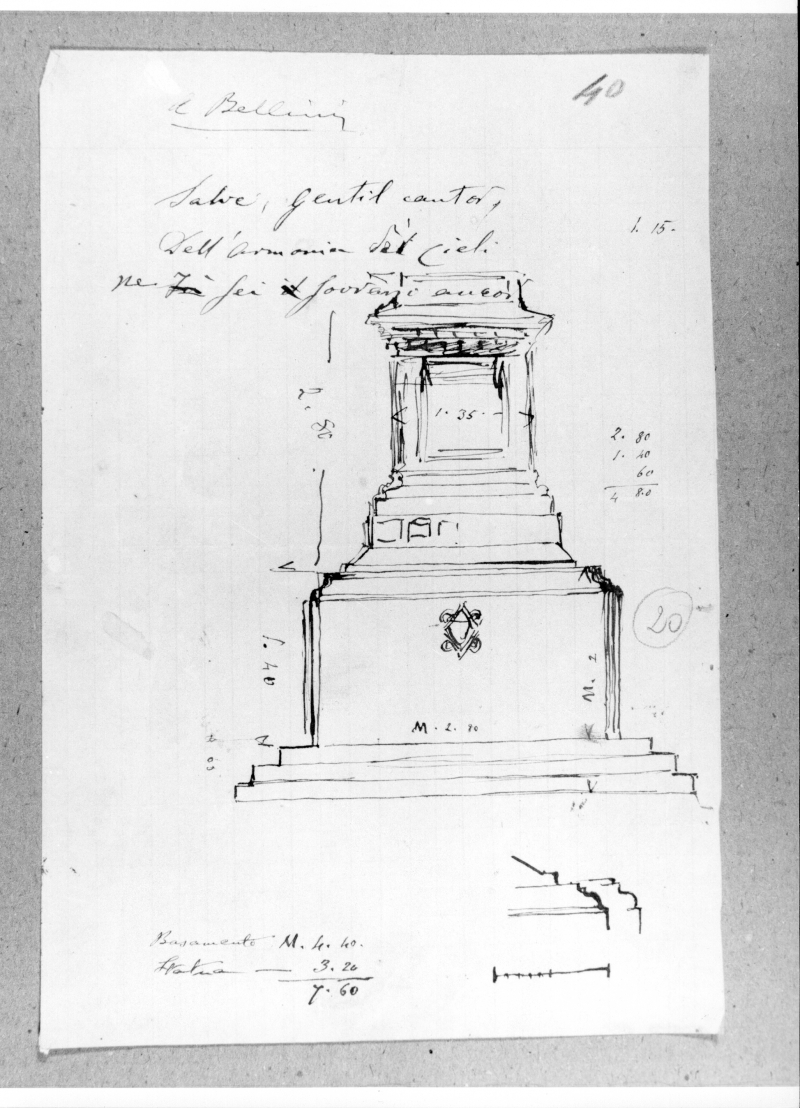 40
A Bellini
Salve, gentil cantor,
Dell'armonia dei cieli
ne sei sovrani ancor
1. 15.
2. 80
1. 35.
2. 80
1. 40
60
4 80
20
1. 40
M. 2
M. 2. 90
Basamento M. 4. 40.
Statua — 3. 20
7. 60